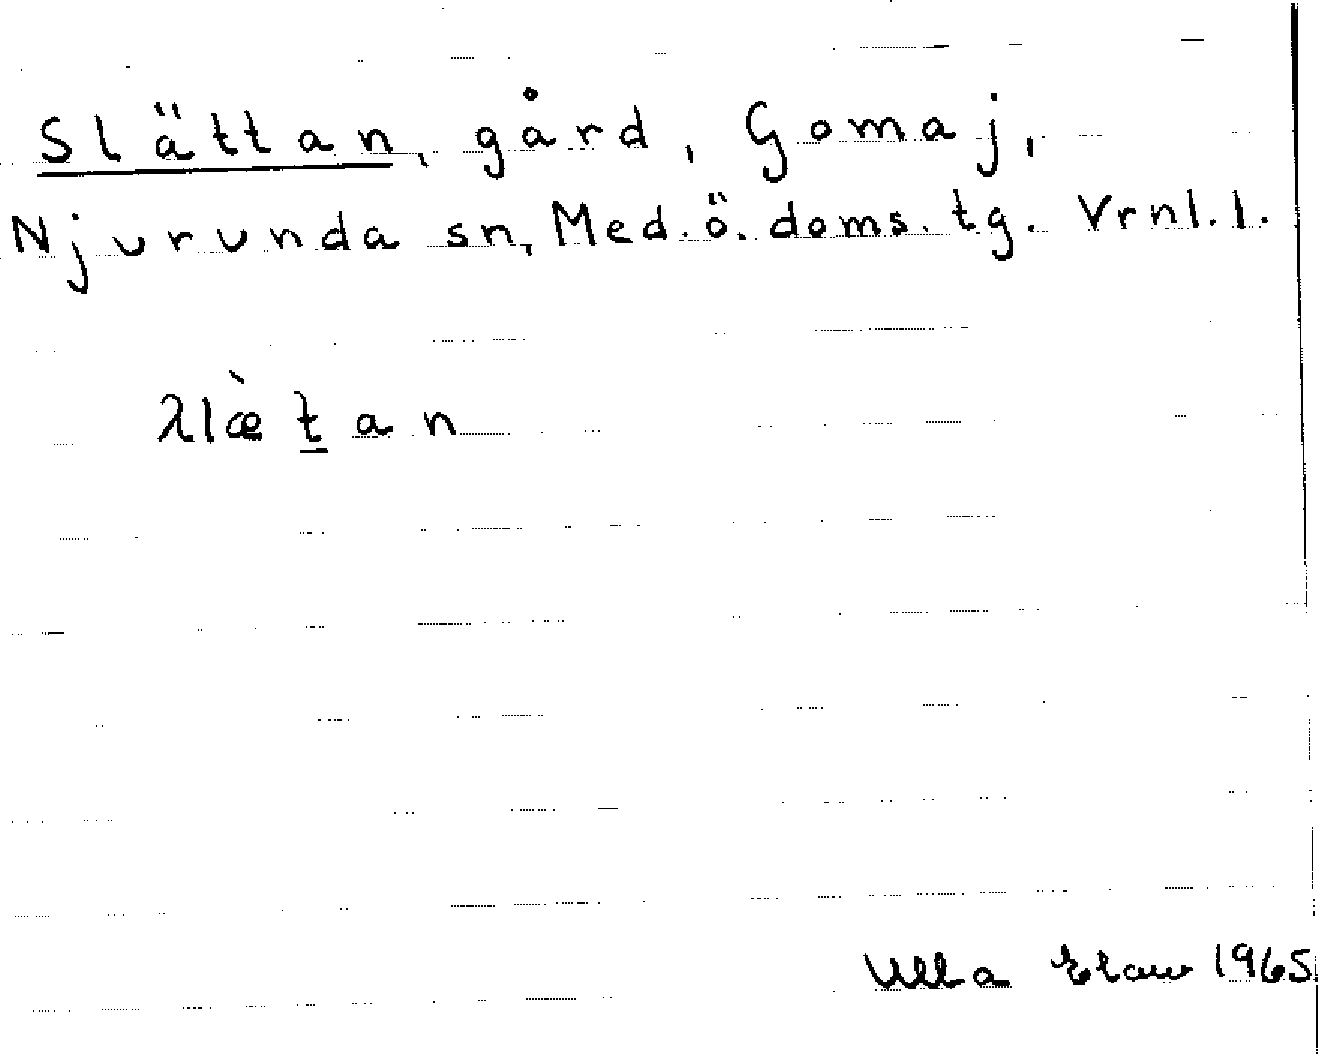 Slättan, gård, Gomaj,
Njurunda sn, Med.ö.doms.tg. Vrnl.l.
λlæ̀ṯan
Ulla 1965